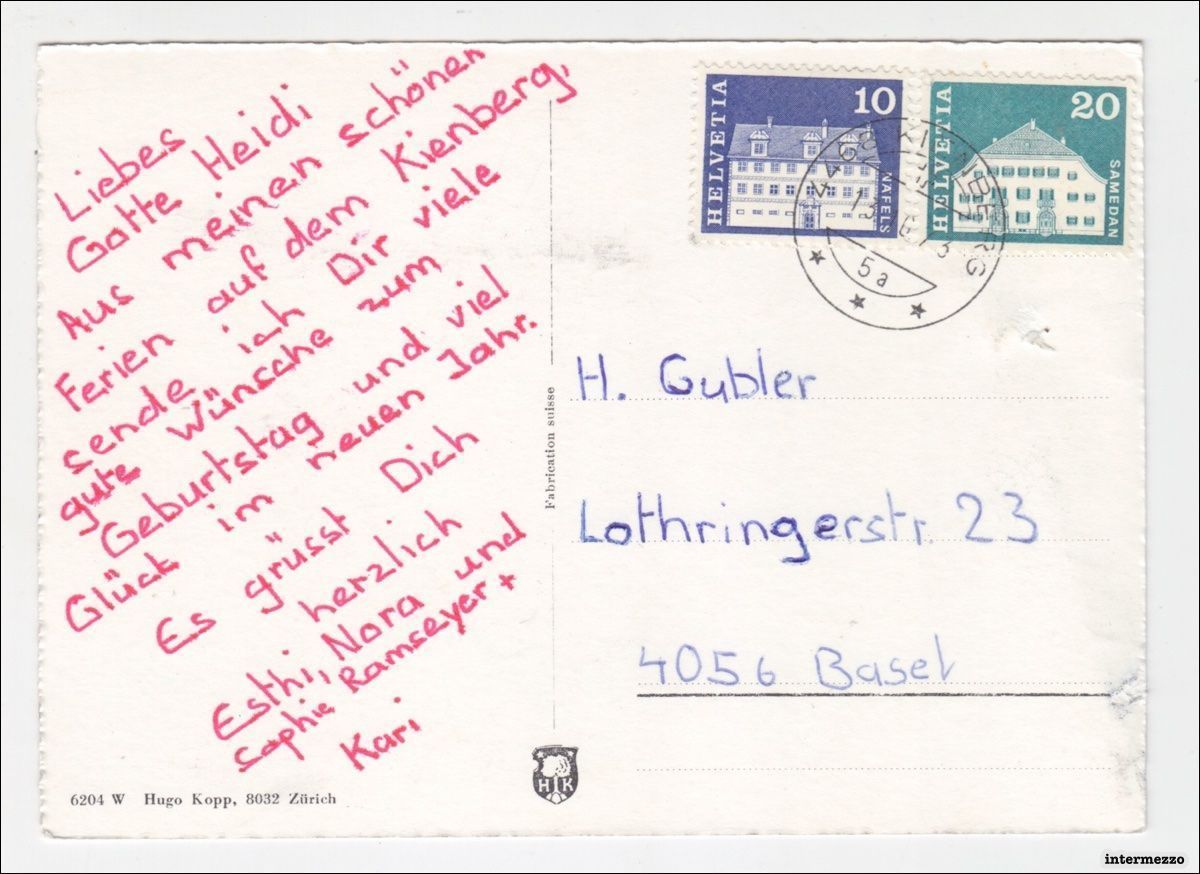 Liebes
Gotte Heidi
Aus meinen schönen
Ferien auf dem Kienberg,
sende ich Dir viele
gute Wünsche zum
Geburtstag und viel
Glück im neuen Jahr.
Es grüsst Dich
herzlich
Esthi, Nora und
Sophie Ramseyer +
Kari
6204 W Hugo Kopp, 8032 Zürich
Fabrication suisse
HK
HELVETIA
10
NÄFELS
HELVETIA
20
SAMEDAN
4468 KIENBERG
5a
H. Gubler
Lothringerstr. 23
4056 Basel
intermezzo